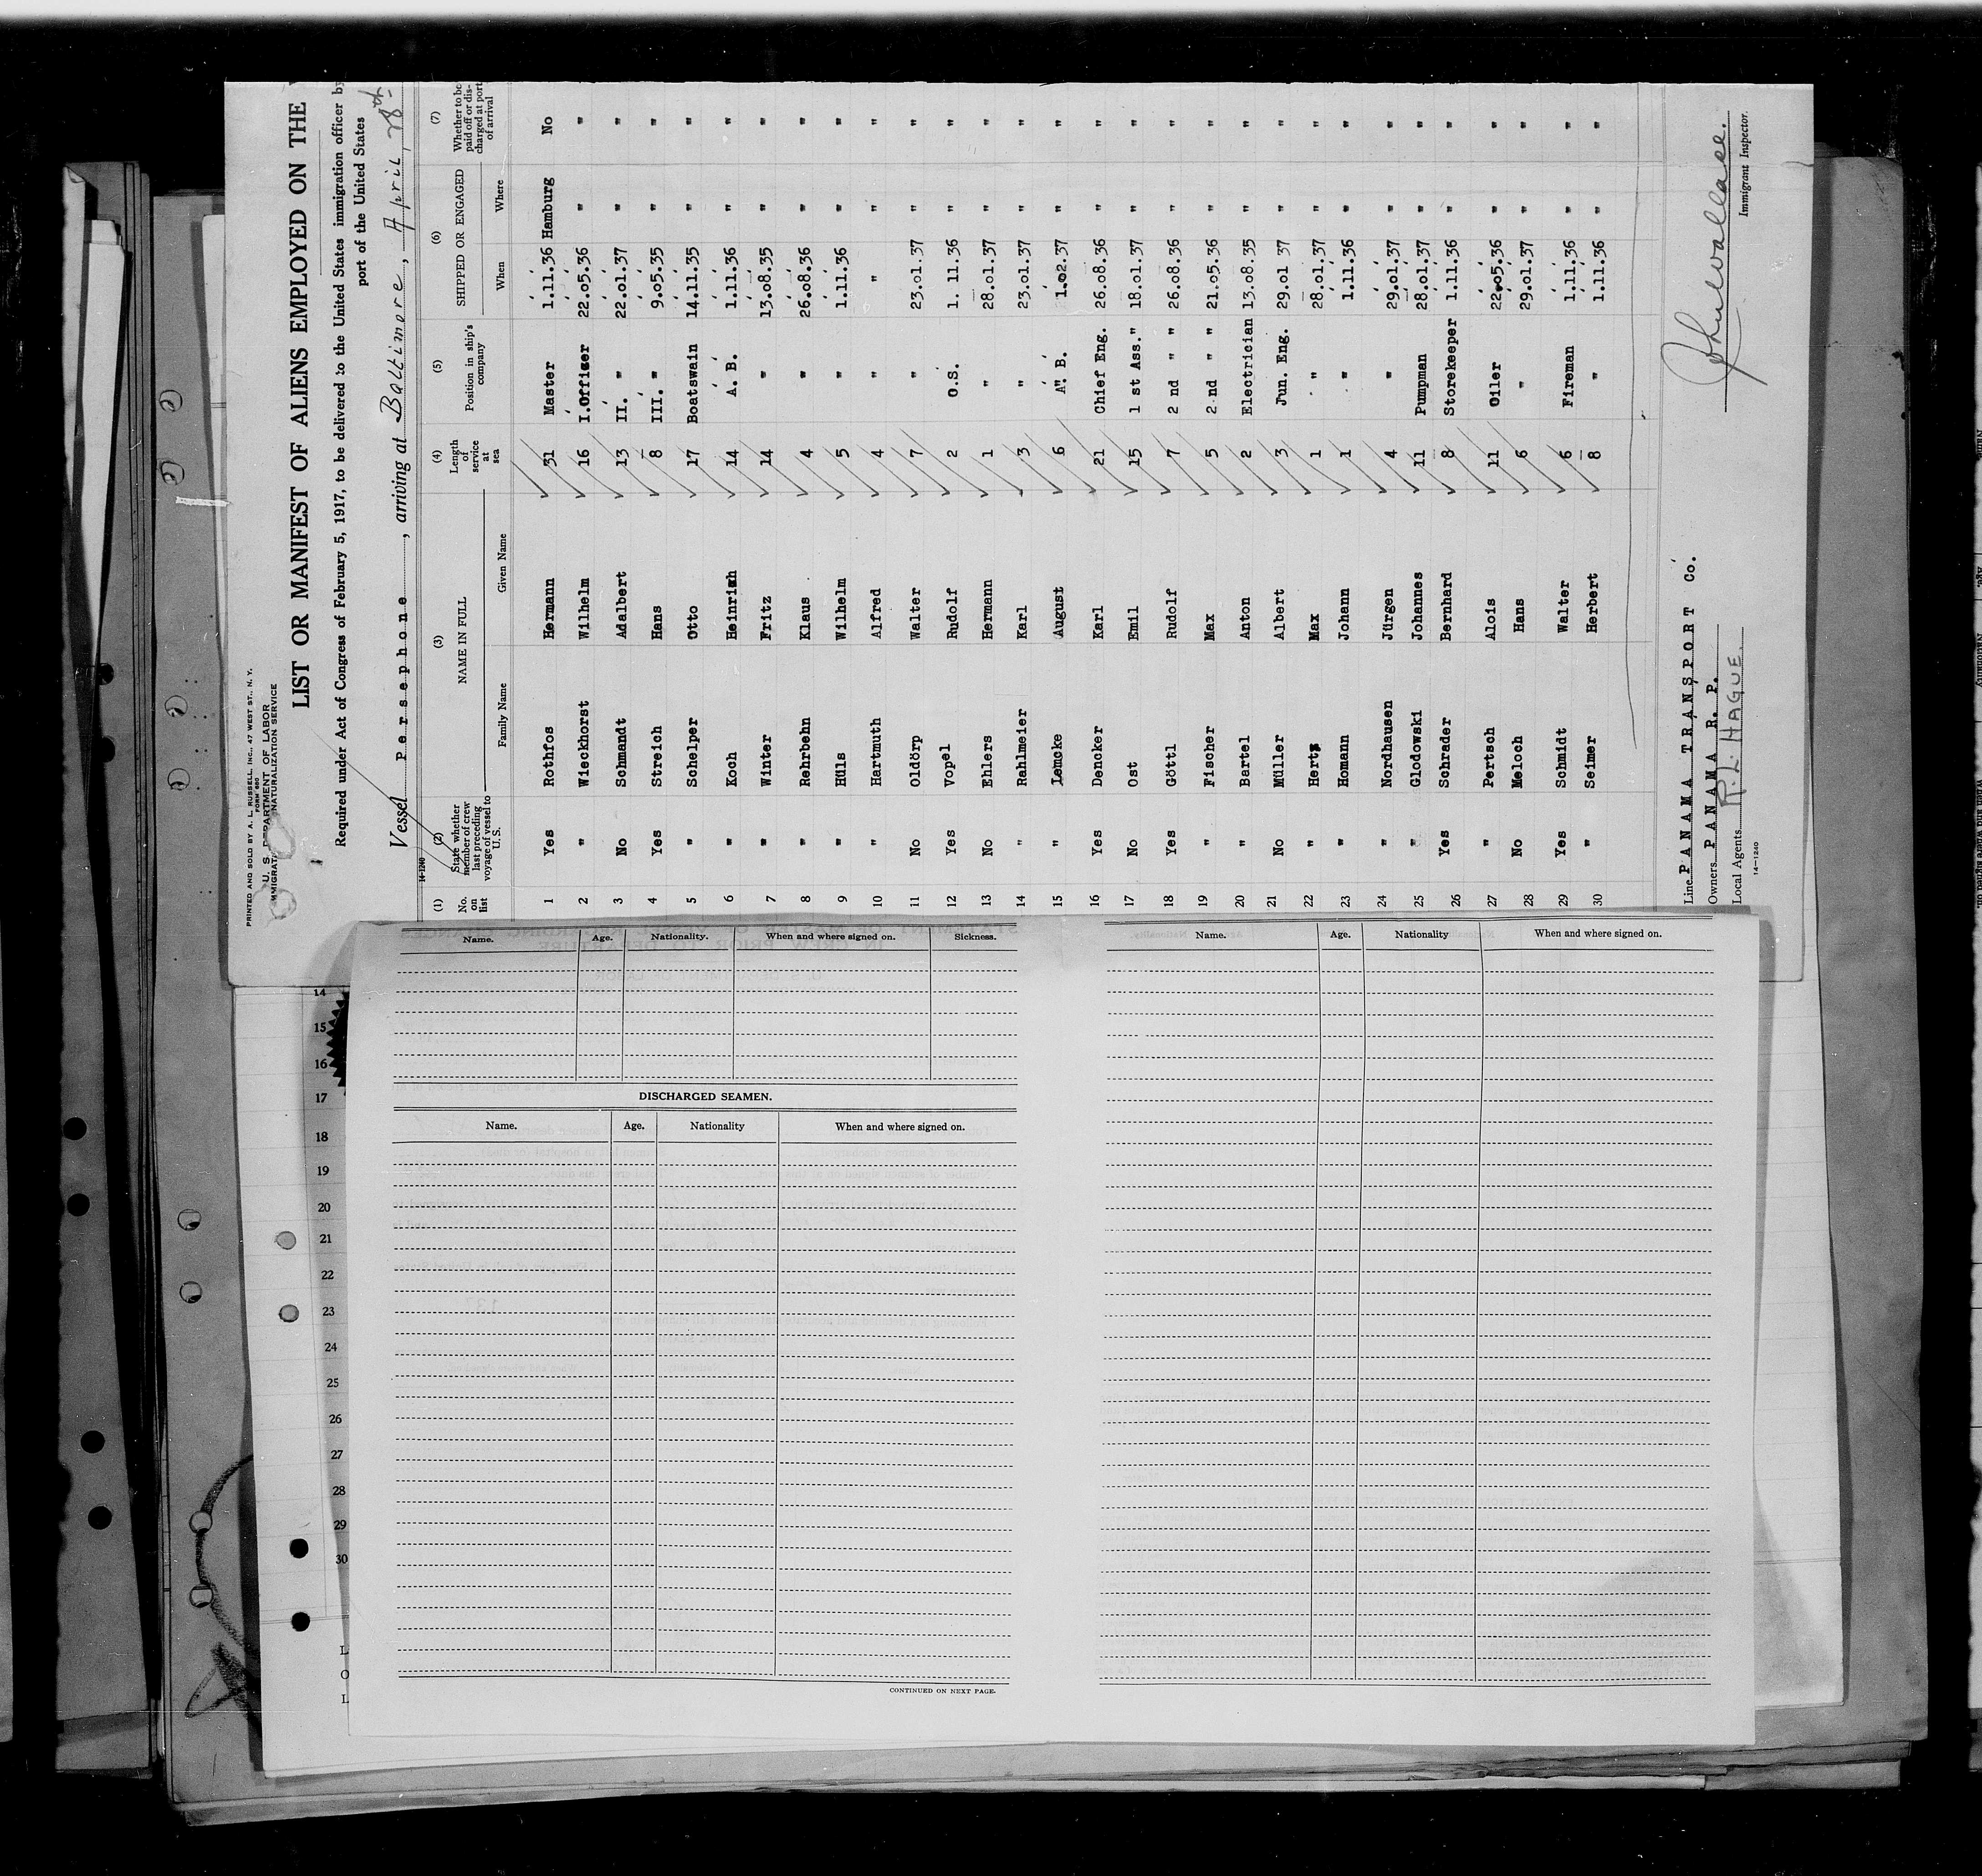 PRINTED AND SOLD BY A. L. RUSSELL, INC., 47 WEST ST., N. Y.
FORM 680
U. S. DEPARTMENT OF LABOR
NATURALIZATION SERVICE
LIST OR MANIFEST OF ALIENS EMPLOYED ON THE
Required under Act of Congress of February 5, 1917, to be delivered to the United States immigration officer by
port of the United States
Vessel Persephone, arriving at Baltimore, April 28th
14-1240
(1) (2) (3) (4) (5) (6) (7)
No. on list State whether member of crew last preceding voyage of vessel to U. S. NAME IN FULL Length of service at sea Position in ship's company SHIPPED OR ENGAGED Whether to be paid off or discharged at port of arrival
Family Name Given Name When Where
1 Yes Rothfos Hermann 31 Master 1.11.36 Hamburg No
2 " Wieckhorst Wilhelm 16 I.Officer 22.05.36 " "
3 No Schmandt Adalbert 13 II. " 22.01.37 " "
4 Yes Streich Hans 8 III. " 9.05.35 " "
5 " Schelper Otto 17 Boatswain 14.11.35 " "
6 " Koch Heinrich 14 A. B. 1.11.36 " "
7 " Winter Fritz 14 " 13.08.35 " "
8 " Rehrbehn Klaus 4 " 26.08.36 " "
9 " Hüls Wilhelm 5 " 1.11.36 " "
10 " Hartmuth Alfred 4 " " " "
11 No Oldörp Walter 7 " 23.01.37 " "
12 Yes Vopel Rudolf 2 O.S. 1. 11.36 " "
13 No Ehlers Hermann 1 " 28.01.37 " "
14 " Rahlmeier Karl 3 " 23.01.37 " "
15 " Lemcke August 6 A. B. 1.02.37 " "
16 Yes Dencker Karl 21 Chief Eng. 26.08.36 " "
17 No Ost Emil 15 1 st Ass." 18.01.37 " "
18 Yes Göttl Rudolf 7 2 nd " " 26.08.36 " "
19 " Fischer Max 5 2 nd " " 21.05.36 " "
20 " Bartel Anton 2 Electrician 13.08.35 " "
21 No Müller Albert 3 Jun. Eng. 29.01 37 " "
22 " Hertz Max 1 " 28.01.37 " "
23 " Homann Johann 1 " 1.11.36 " "
24 " Nordhausen Jürgen 4 " 29.01.37 " "
25 " Glodowski Johannes 11 Pumpman 28.01.37 " "
26 Yes Schrader Bernhard 8 Storekeeper 1.11.36 " "
27 " Pertsch Alois 11 Oiler 22.05.36 " "
28 No Meloch Hans 6 " 29.01.37 " "
29 Yes Schmidt Walter 6 Fireman 1.11.36 " "
30 " Seimer Herbert 8 " 1.11.36 " "
Line PANAMA TRANSPORT Co.
Owners PANAMA R. P.
Local Agents R.L. HAGUE.
14-1240
John Wallace.
Immigrant Inspector.
Name. Age. Nationality. When and where signed on. Sickness.
DISCHARGED SEAMEN.
Name. Age. Nationality When and where signed on.
CONTINUED ON NEXT PAGE.
Name. Age. Nationality When and where signed on.
14
15
16
17
18
19
20
21
22
23
24
25
26
27
28
29
30